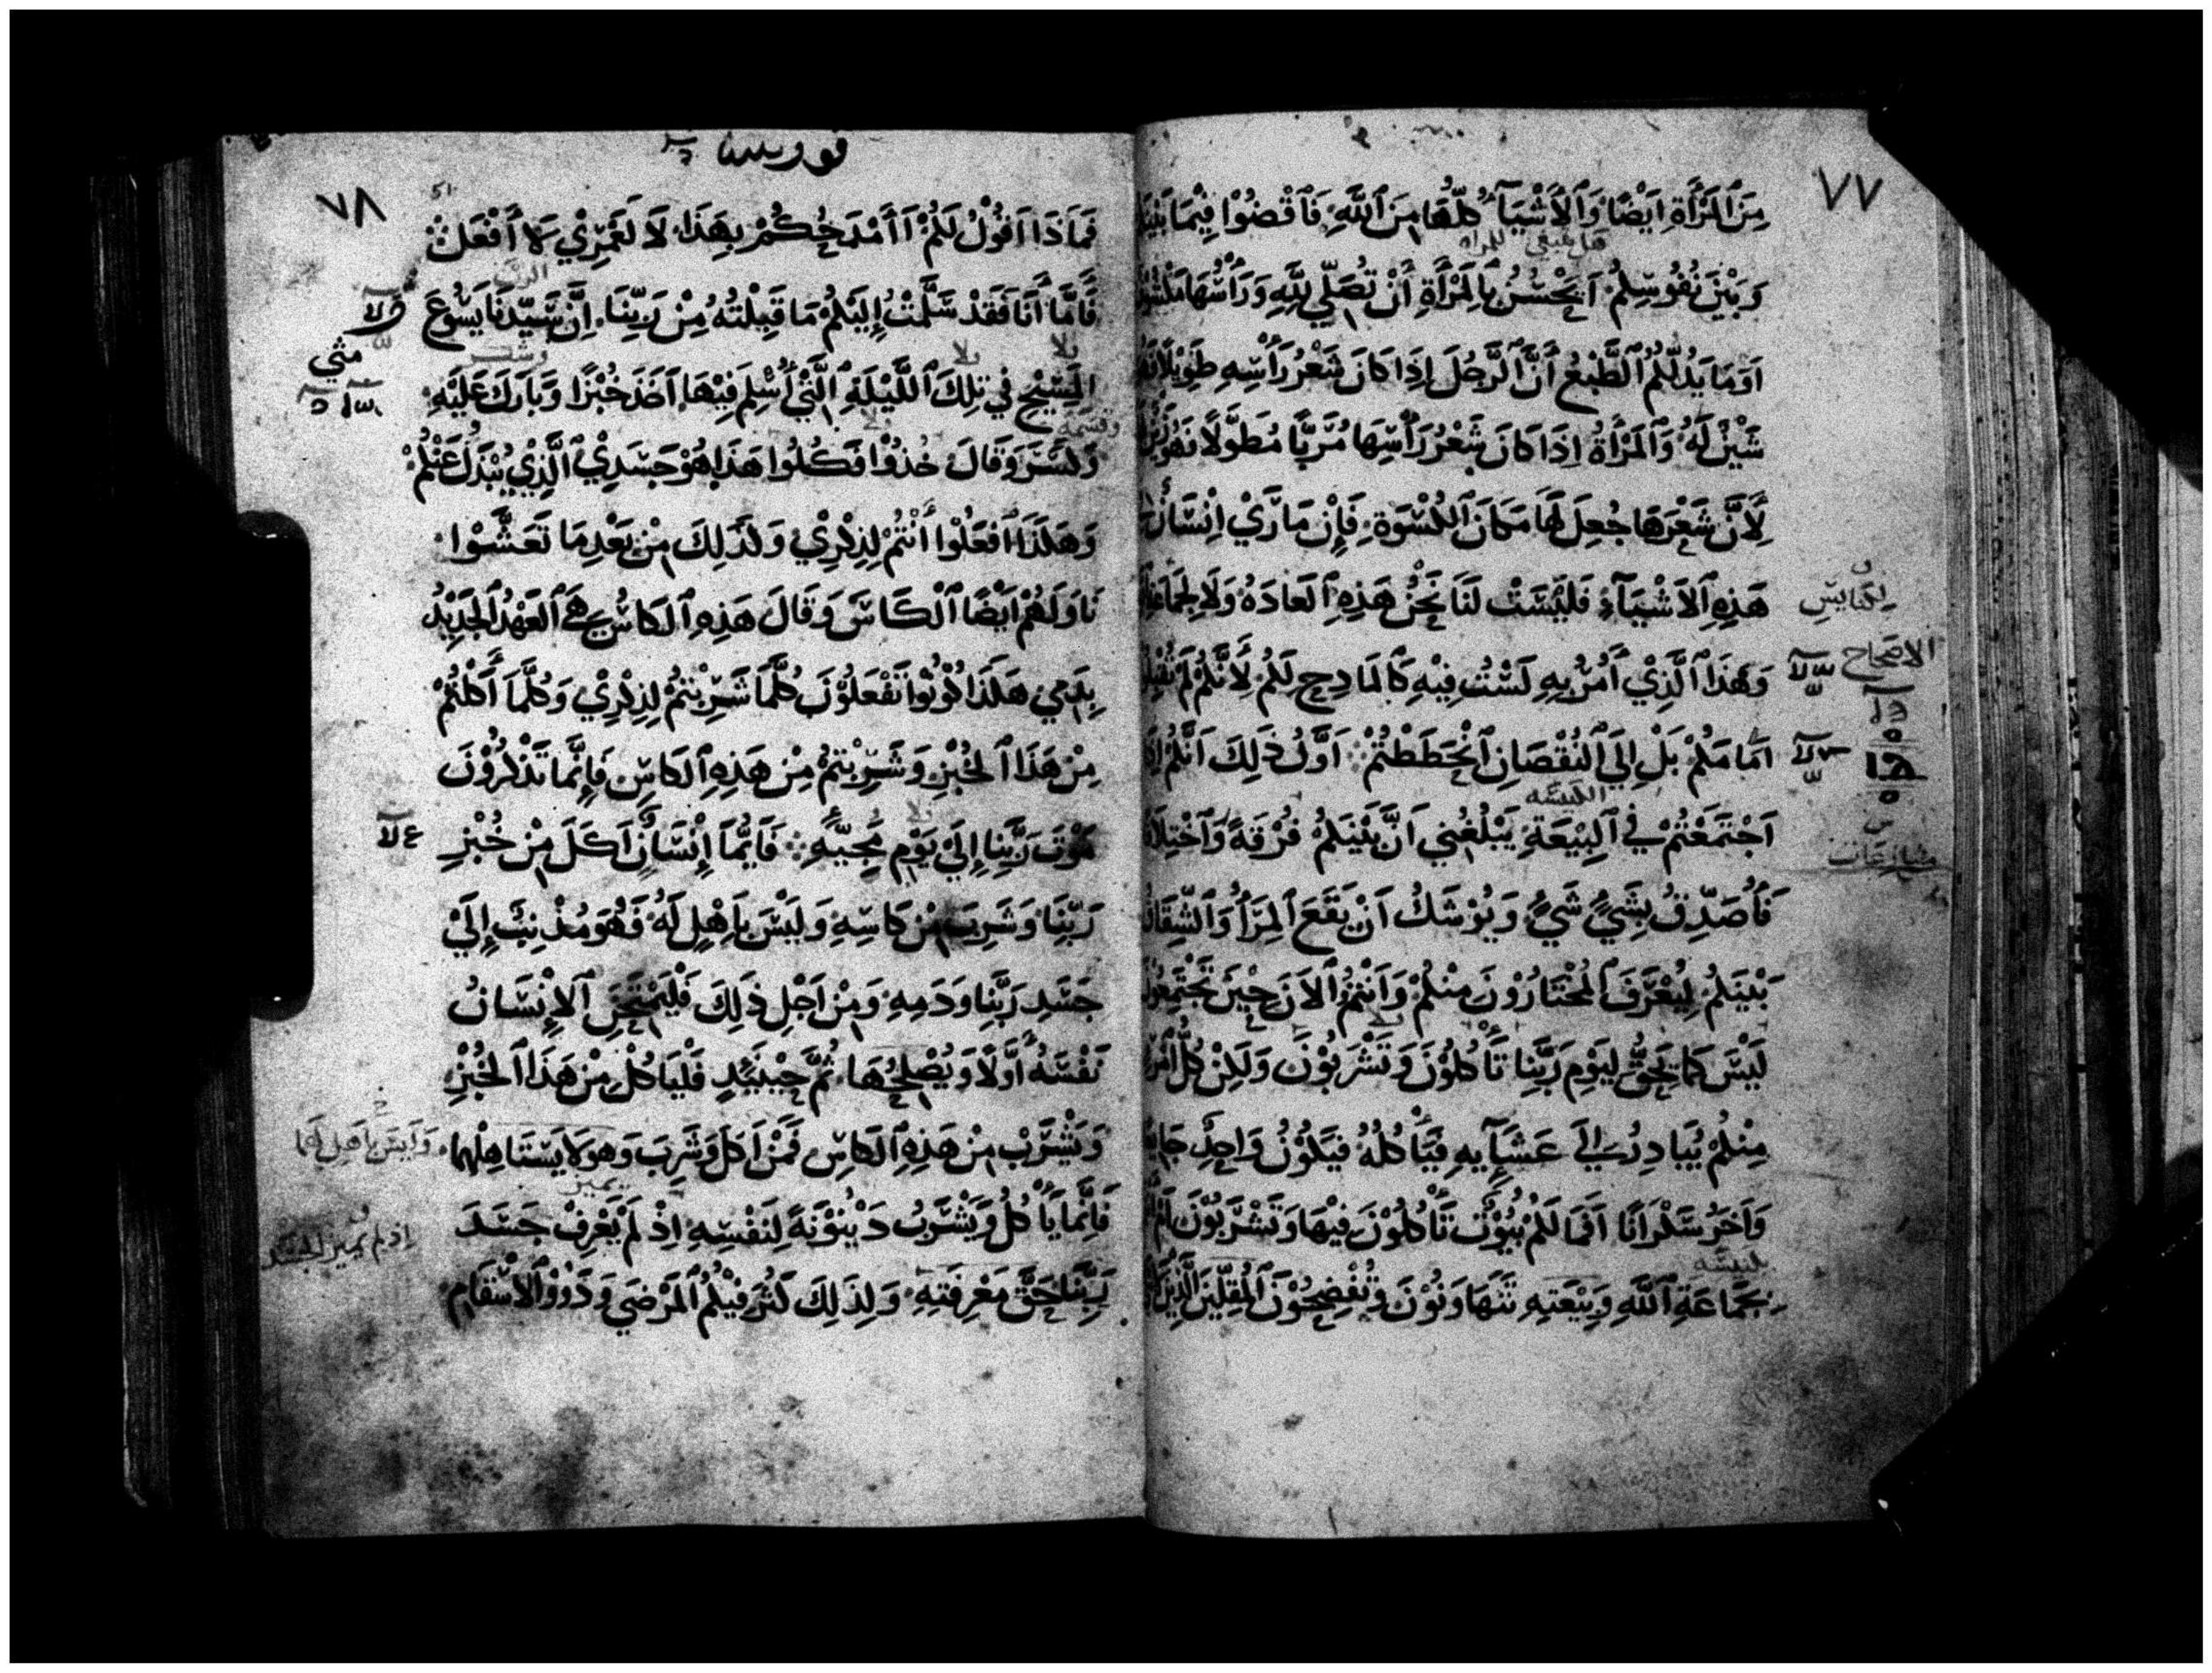 ٧٧
مِنَ ٱلمَرْأَةِ اَيْضًا وَٱلأَشْيَآءُ كُلّهَا مِنَ ٱللَّهِ فَٱقْضُوْا فِيْمَا بَيْنَ
هل ينبغي للمراه
وَبَيْنَ نُفُوسِكُمْ اَيَحْسُنُ بِالمَرْأَةِ أَنْ تُصَلّي لِلَّهِ وَرَأْسُهَا مَكْشُوْ
اَوَمَا يَدُلّكُمُ ٱلطَّبْعُ أَنَّ ٱلرَّجُلَ اِذَا كَانَ شَعْرُ رَأْسِهِ طَوِيْلًا فَإِنَّهُ
شَيْنٌ لَهُ وَٱلمَرْأَةُ اِذَا كَانَ شَعْرُ رَأْسِهَا مُرَبًّا مُطَوَّلًا فَهُوَ زَيْنٌ
لِأَنَّ شَعْرَهَا جُعِلَ لَهَا مَكَانَ ٱلكُسْوَةِ فَإِن مَارَيْ اِنْسَانٌ
هَذِهِ ٱلأَشْيَآءَ فَلَيْسَتْ لَنَا نَحْنُ هَذِهِ ٱلعَادَةُ وَلَا لِجَمَاعَةِ
لِكَنايسِ
الاصحاح
وَهَذَا ٱلَّذِيْ أَمُرُ بِهِ لَسْتُ فِيْهِ كَٱلمَادِحِ لَكُمْ لأَنَّكُمْ لَمْ تُقْبِلُ
اَمَامَكُمْ بَلْ اِلَي ٱلنُقْصَانِ ٱنْحَطَطْتُمْ اَوَّلُ ذَلِكَ اَنَّكُمْ اِذَا
الكنيسه
اَجْتَمَعْتُمْ فِي ٱلبِيْعَةِ يَبْلُغُنِي اَنَّ بَيْنَكُمْ فُرْقَةً وَٱخْتِلَا
منازعات
فَأُصَدِّقُ بِشَيْءٍ شَيْءٍ وَيُوْشَكُ اَنْ يَقَعَ ٱلمِرَأُ وَٱلشِّقَاقُ
بَيْنَكُمْ لِيُعْرَفَ ٱلمُخْتَارُوْنَ مِنْكُمْ وَأَنْتُمُ ٱلاَنَ حِيْنَ تَجْتَمِعُوْنَ
لَيْسَ كَمَا يَحِقُّ لِيَوْمِ رَبِّنَا تَأْكُلُوْنَ وَتَشْرَبُوْنَ وَلَكِنْ كُلُّ ٱمْرِ
مِنْكُمْ يُبَادِرُ اِلَي عَشَآيِهِ فَيَأْكُلُهُ فَيَكُوْنُ وَاحِدٌ جَايِعًا
وَاَخَرُ سَكْرَانًا اَفَمَا لَكُمْ بُيُوْتٌ تَأْكُلُوْنَ فِيْهَا وَتَشْرَبُوْنَ اَمْ
كنيسه
بِجَمَاعَةِ ٱللَّهِ وَبِيْعَتِهِ تَتَهَاوَنُوْنَ وَتُفْضِحُوْنَ ٱلمُقِلّيْنَ ٱلَّذِيْنَ
قورنثيا
٧٨
فَمَاذَا اَقُوْلُ لَكُمْ اَأَمْدَحُكُمْ بِهَذَا لَا لَعَمْرِيْ لَا أَفْعَلُ
الرب
فَأَمَّا أَنَا فَقَدْ سَلَّمْتُ إِلَيْكُمْ مَا قَبِلْتُهُ مِنْ رَبِّنَا إِنَّ سَيِّدَنَا يَسُوْعَ
مثي
وشكر
ٱلمَسِيْحِ فِي تِلِكَ ٱللَّيْلَةِ ٱلَّتِيْ أُسْلِمَ فِيْهَا اَخَذَ خُبْزًا وَبَارَكَ عَلَيْهِ
وقسمه
وَكَسَرَ وَقَالَ خُذُوْا فَكُلُوا هَذَا هُوَ جَسَدِيْ ٱلَّذِيْ يُبْدَلُ عَنْكُمْ
وَهَكَذَا ٱفْعَلُوْا أَنْتُمْ لِذِكْرِيْ وَلَذَلِكَ مِنْ بَعْدِ مَا تَعَشَّوْا
نَاوَلَهُمْ اَيْضًا ٱلْكَاسَ وَقَالَ هَذِهِ ٱلكَاسُ هِيَ ٱلعَهْدُ ٱلجَدِيْدُ
بِدَمِي هَكَذَا كُوْنُوا تَفْعَلُوْنَ كُلَّمَا شَرِبْتُمْ لِذِكْرِيْ وَكُلَّمَا أَكَلْتُمْ
مِنْ هَذَا ٱلخُبْزِ وَشَرِبْتُمْ مِنْ هَذِهِ ٱلكَاسِ فَإِنَّمَا تَذْكُرُوْنَ
مَوْتَ رَبِّنَا إِلَيْ يَوْمِ مَجِيّهِ فَأَيُّمَا إِنْسَانٍ اَكَلَ مِنْ خُبْزِ
رَبِّنَا وَشَرِبَ مِنْ كَاسِهِ وَلَيْسَ بِأَهْلٍ لَهُ فَهُوَ مُذْنِبٌ إِلَيْ
جَسَدِ رَبِّنَا وَدَمِهِ وَمِنْ اَجْلِ ذَلِكَ فَلْيَمْتَحِنِ ٱلإِنْسَانُ
نَفْسَهُ أَوَّلًا وَيُصْلِحُهَا ثُمَّ حِيْنَيِذٍ فَلْيَاكُلْ مِنْ هَذَا ٱلخُبْزِ
وَيَشْرَبْ مِنْ هَذِهِ ٱلكَاسِ فَمَنْ اَكَلَ وَشَرِبَ وَهوَ لَا يَسْتَاهِلُهَا
وَلَيسَ باهل لهما
يميز
فَإِنَّمَا يَأْكُلُ وَيَشْرَبُ دَيْنُوْنَةً لِنَفْسِهِ اِذْ لَمْ يَعْرِفْ جَسَدَ
اذ لم يميز الجسد
رَبِّنَا حَقَّ مَعْرِفَتِهِ وَلِذَلِكَ كَثُرَ فِيْكُمُ ٱلمَرْضَي وَذَوُوْ ٱلأَسْقَامِ